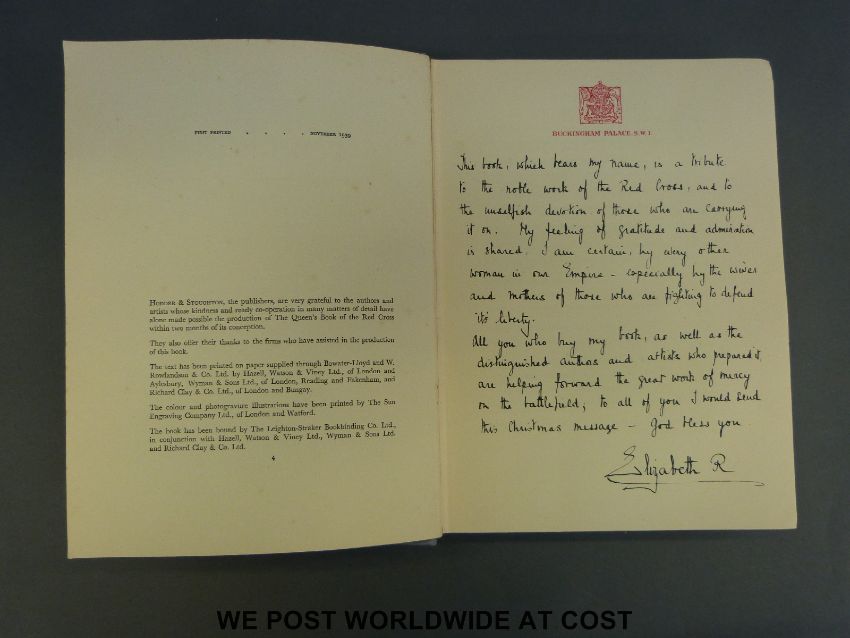 FIRST PRINTED . . . . NOVEMBER 1939
HODDER & STOUGHTON, the publishers, are very grateful to the authors and
artists whose kindness and ready co-operation in many matters of detail have
alone made possible the production of The Queen's Book of the Red Cross
within two months of its conception.
They also offer their thanks to the firms who have assisted in the production
of this book.
The text has been printed on paper supplied through Bowater-Lloyd and W.
Rowlandson & Co. Ltd. by Hazell, Watson & Viney Ltd., of London and
Aylesbury, Wyman & Sons Ltd., of London, Reading and Fakenham, and
Richard Clay & Co. Ltd., of London and Bungay.
The colour and photogravure illustrations have been printed by The Sun
Engraving Company Ltd., of London and Watford.
The book has been bound by The Leighton-Straker Bookbinding Co. Ltd.,
in conjunction with Hazell, Watson & Viney Ltd., Wyman & Sons Ltd.
and Richard Clay & Co. Ltd.
4
BUCKINGHAM PALACE. S.W.1.
This book, which bears my name, is a tribute
to the noble work of the Red Cross, and to
the unselfish devotion of those who are carrying
it on. My feeling of gratitude and admiration
is shared, I am certain, by every other
woman in our Empire - especially by the wives
and mothers of those who are fighting to defend
its liberty.
All you who buy my book, as well as the
distinguished authors and artists who prepared it,
are helping forward the great work of mercy
on the battlefield; to all of you I would send
this Christmas message - God bless you.
Elizabeth R
WE POST WORLDWIDE AT COST